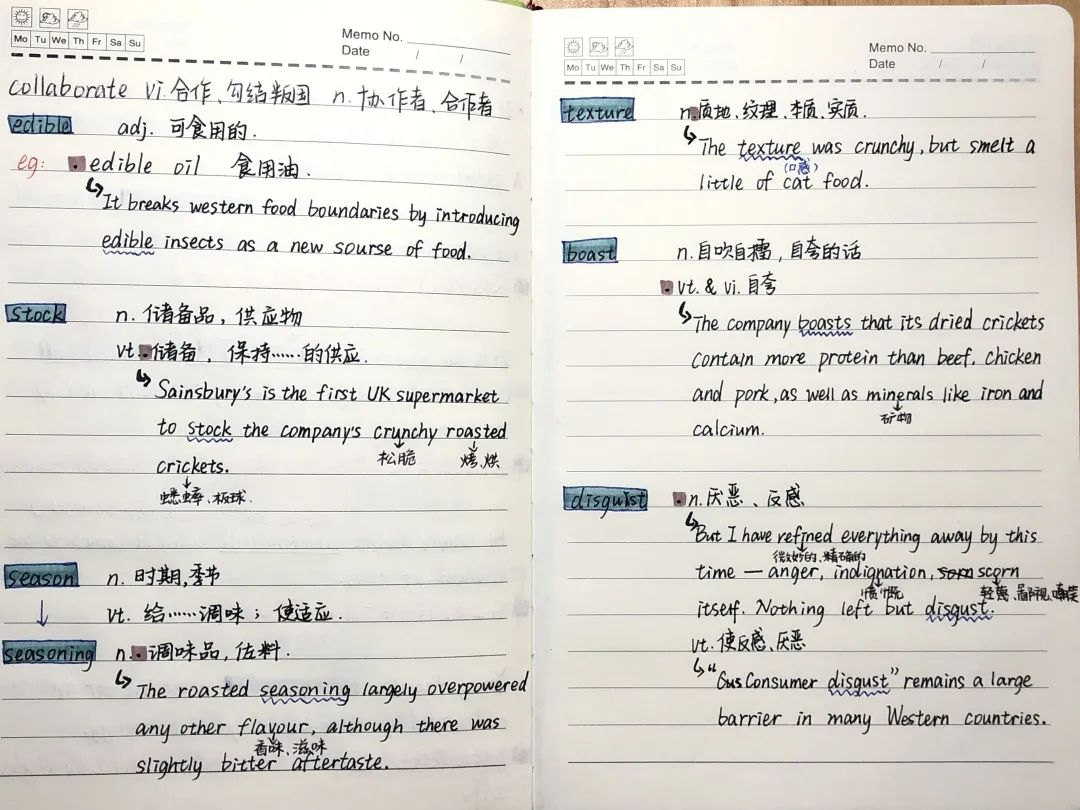 Mo Tu We Th Fr Sa Su
Memo No.
Date / /
collaborate vi. 合作、勾结叛国 n. 协作者、合作者
edible adj. 可食用的.
eg: edible oil 食用油.
It breaks western food boundaries by introducing
edible insects as a new sourse of food.
stock n. 储备品，供应物
vt. 储备，保持……的供应.
Sainsbury's is the first UK supermarket
to stock the company's crunchy roasted
松脆 烤、烘
crickets.
蟋蟀、板球.
season n. 时期,季节
vt. 给……调味；使适应.
seasoning n. 调味品，佐料.
The roasted seasoning largely overpowered
any other flavour, although there was
香味、滋味
slightly bitter aftertaste.
Mo Tu We Th Fr Sa Su
Memo No.
Date / /
texture n. 质地、纹理、本质、实质.
The texture was crunchy, but smelt a
(口感)
little of cat food.
boast n. 自吹自擂，自夸的话
vt. & vi. 自夸
The company boasts that its dried crickets
contain more protein than beef, chicken
and pork, as well as minerals like iron and
矿物
calcium.
disguist n. 厌恶、反感
But I have refined everything away by this
微妙的、精确的
time — anger, indignation, scorn
愤慨 轻蔑、鄙视、嘲笑
itself. Nothing left but disgust.
vt. 使反感、厌恶
"Consumer disgust" remains a large
barrier in many Western countries.